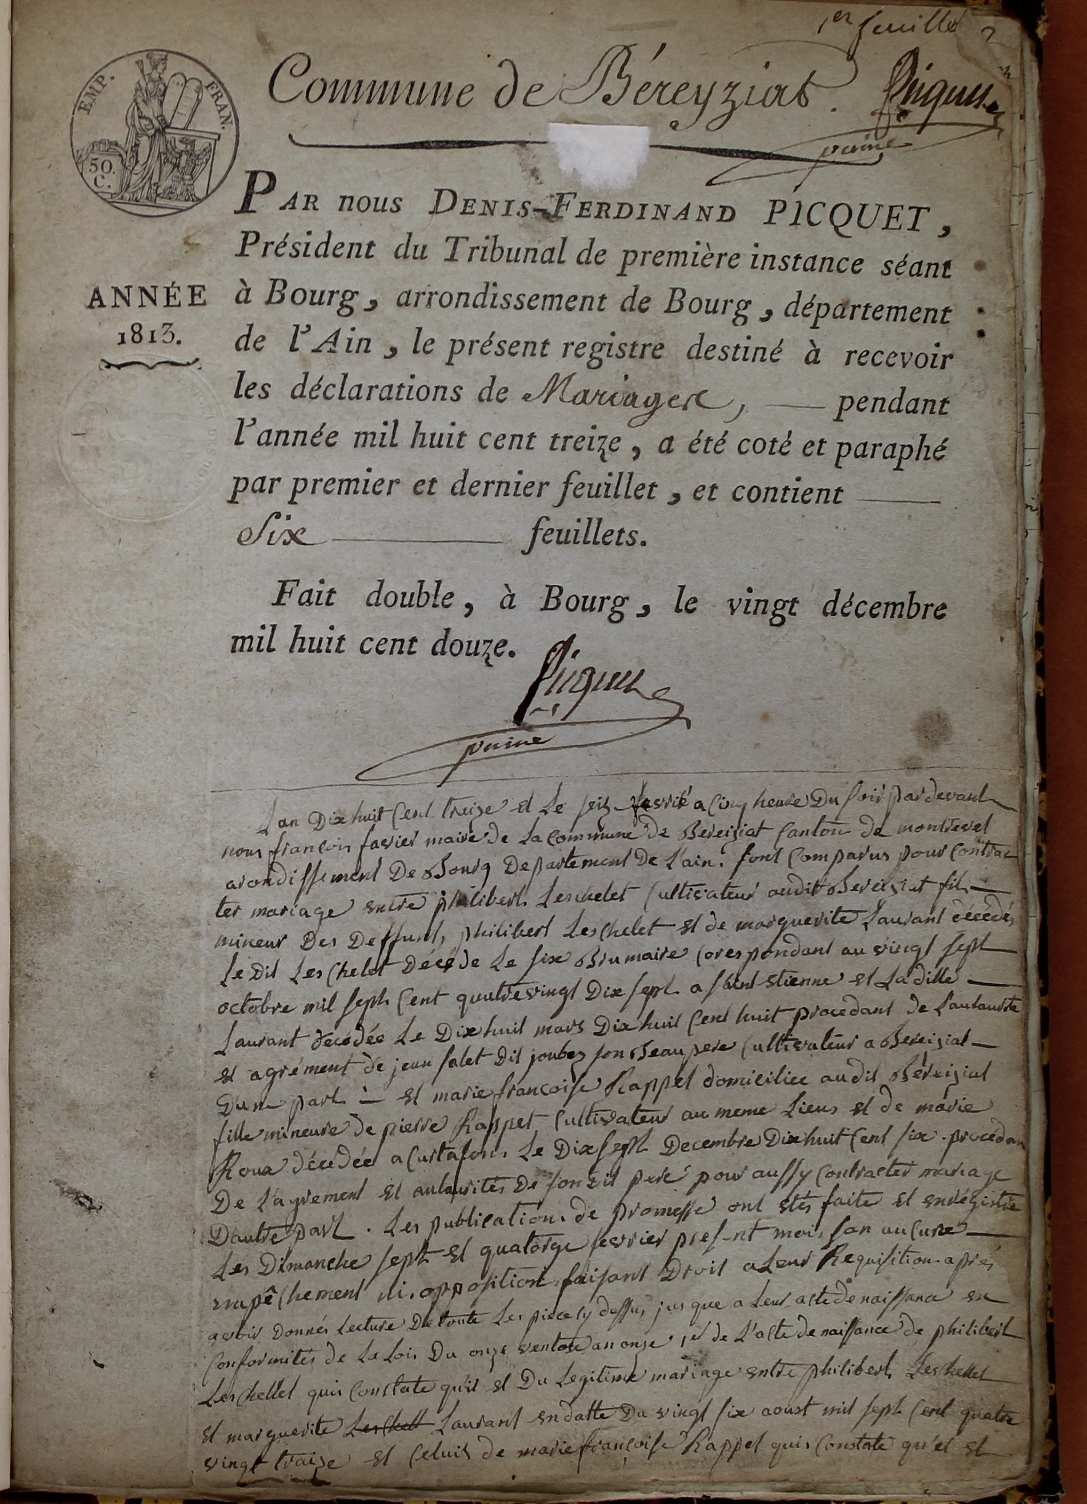 1er feuillet
EMP. FRAN.
50 C.
Commune de Béreyziat.
Picquet
ANNÉE
1813.
PAR nous DENIS-FERDINAND PICQUET,
Président du Tribunal de première instance séant
à Bourg, arrondissement de Bourg, département
de l'Ain, le présent registre destiné à recevoir
les déclarations de Mariages, pendant
l'année mil huit cent treize, a été coté et paraphé
par premier et dernier feuillet, et contient
Six feuillets.
Fait double, à Bourg, le vingt décembre
mil huit cent douze.
Picquet
Lan Dix huit Cent treize et Le seize fevrié a Cinq heure Du soir pardevant
nous françois favier maire de La commune de Bereiziat Canton de montrevel
arondissement De Bourg Departement De L'ain. sont Comparus pour Contrac
ter mariage entre philibert Leschelet Cultivateur audit Bereiziat fils
mineur Des Deffunts philibert Leschelet et de marguerite Laurant décédés
Le Dit Leschelet Décédé Le six Brumaire Corespondant au vingt sept
octobre mil sept Cent quatrevingt Dix sept a st etienne et La ditte
Laurant décédée Le Dix huit mars Dix huit Cent huit procedant de L'autaurité
et agrément de jean Dit joubez son Beau pere Cultivateur a Bereiziat
Dune part et marie françoise Rappet domiciliée audit Béreiziat
fille mineure de pierre Rappet Cultivateur au meme Lieus et de marie
Roux décédée a Curtafons Le Dix sept Decembre Dix huit Cent six procedan
De L'agrement et autaurités De sondit pere pour aussy Contracter mariage
Dautre part. Les publications de promesse ont etés faite et enregistre
Les Dimanche sept et quatorze fevrier present mois san aucune
enpêchement ni opposition faisant Droit a Leur Requisition aprés
avoir Donnés Lecture De toute Les pieces cy dessus jusque a Leur acte de naissance en
Conformités de La Lois Du onze ventose an onze, de L'acte de naissance de philibert
Leschellet quis Constate qu'il et Du Legitime mariage entre philibert Leschellet
et marguerite Leschell Laurant en datte Du vingt six aoust mil sept Cent quatre
vingt traize et Celuis de marie françoise Rappet quis Constate qu'el et